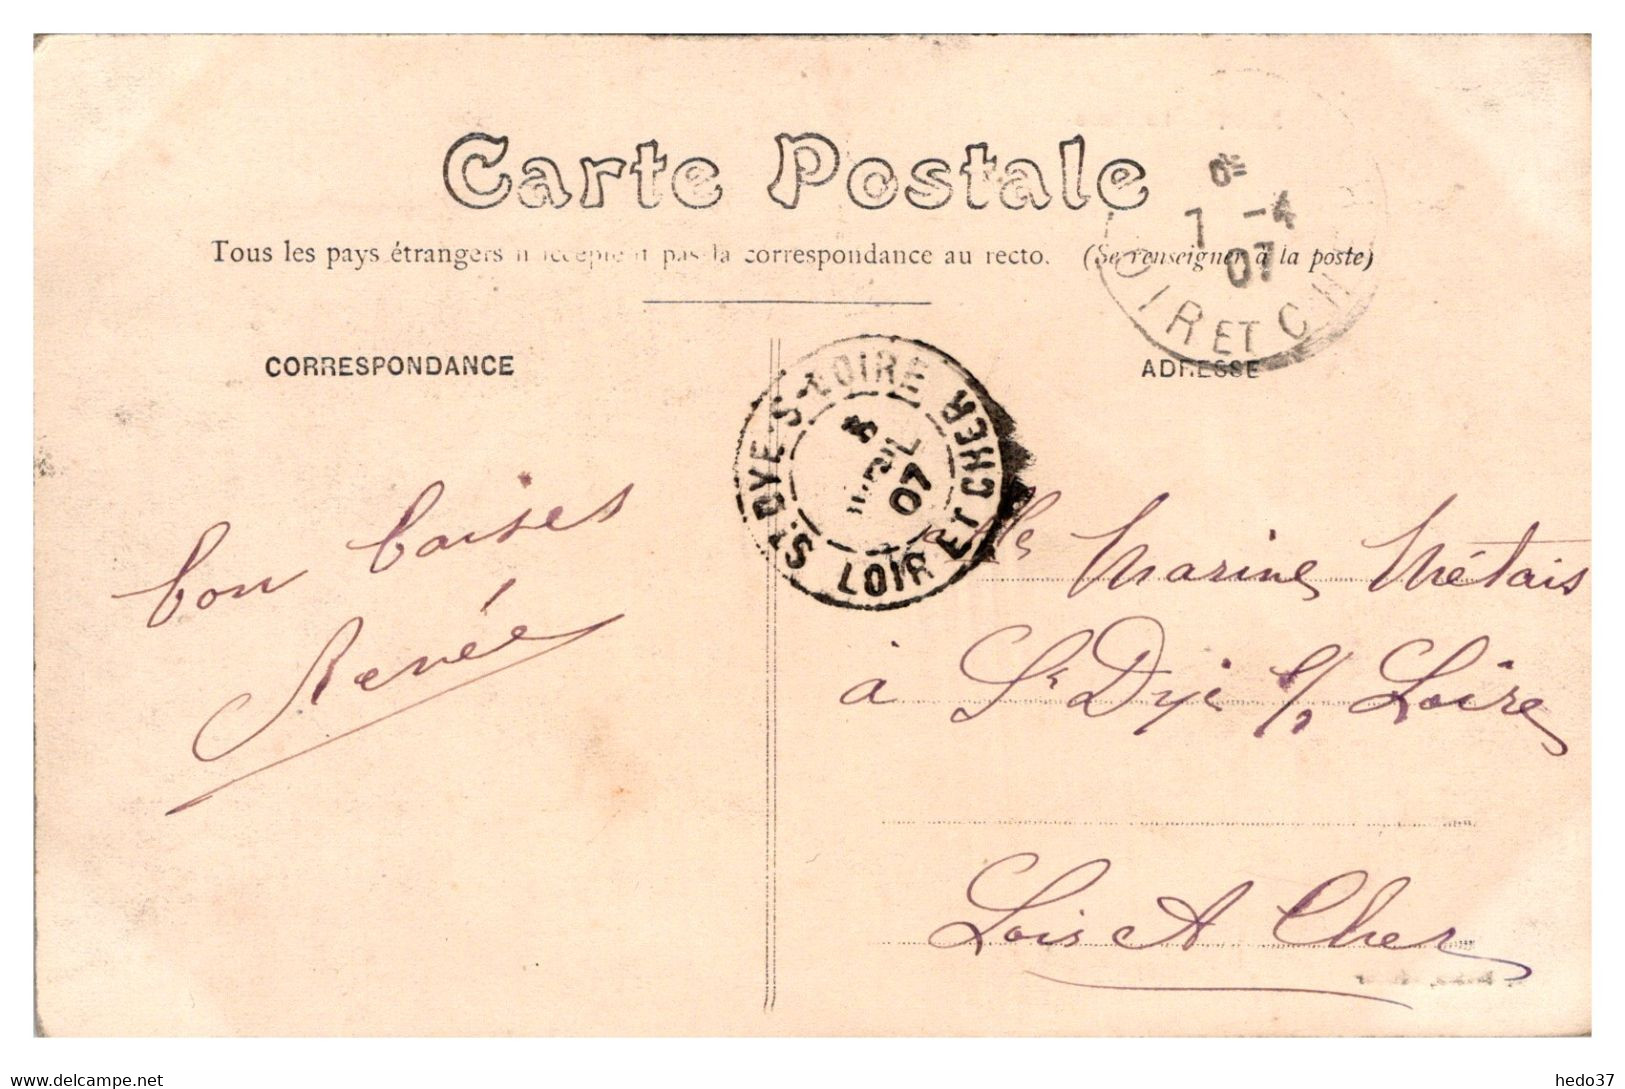 Carte Postale
Tous les pays étrangers n'acceptent pas la correspondance au recto. (Se renseigner à la poste)
CORRESPONDANCE
ADRESSE
6E
7 -4
07
LOIR ET CH
ST DYE-S-LOIRE
AVRIL
07
LOIR ET CHER
bon baises
Renée
Mlle Marine Métais
à St Dyé s/ Loire
Loir & Cher
delcampe.net
hedo37